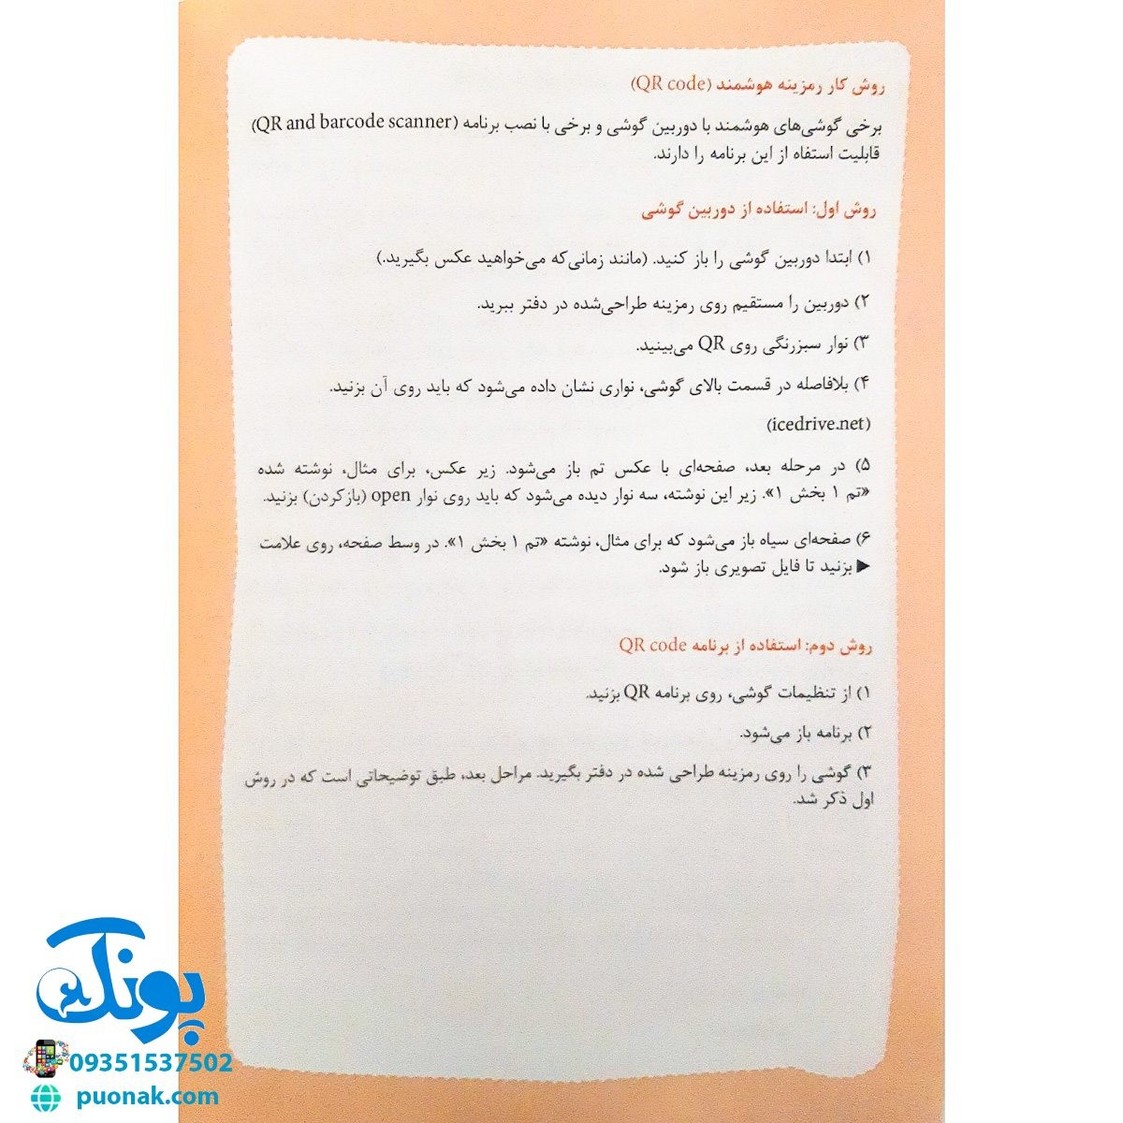 روش کار رمزینه هوشمند (QR code)
برخی گوشی‌های هوشمند با دوربین گوشی و برخی با نصب برنامه (QR and barcode scanner)
قابلیت استفاه از این برنامه را دارند.
روش اول: استفاده از دوربین گوشی
۱) ابتدا دوربین گوشی را باز کنید. (مانند زمانی‌که می‌خواهید عکس بگیرید.)
۲) دوربین را مستقیم روی رمزینه طراحی‌شده در دفتر ببرید.
۳) نوار سبزرنگی روی QR می‌بینید.
۴) بلافاصله در قسمت بالای گوشی، نواری نشان داده می‌شود که باید روی آن بزنید.
(icedrive.net)
۵) در مرحله بعد، صفحه‌ای با عکس تم باز می‌شود. زیر عکس، برای مثال، نوشته شده
«تم ۱ بخش ۱». زیر این نوشته، سه نوار دیده می‌شود که باید روی نوار open (بازکردن) بزنید.
۶) صفحه‌ای سیاه باز می‌شود که برای مثال، نوشته «تم ۱ بخش ۱». در وسط صفحه، روی علامت
▶ بزنید تا فایل تصویری باز شود.
روش دوم: استفاده از برنامه QR code
۱) از تنظیمات گوشی، روی برنامه QR بزنید.
۲) برنامه باز می‌شود.
۳) گوشی را روی رمزینه طراحی شده در دفتر بگیرید. مراحل بعد، طبق توضیحاتی است که در روش
اول ذکر شد.
پونک
09351537502
puonak.com